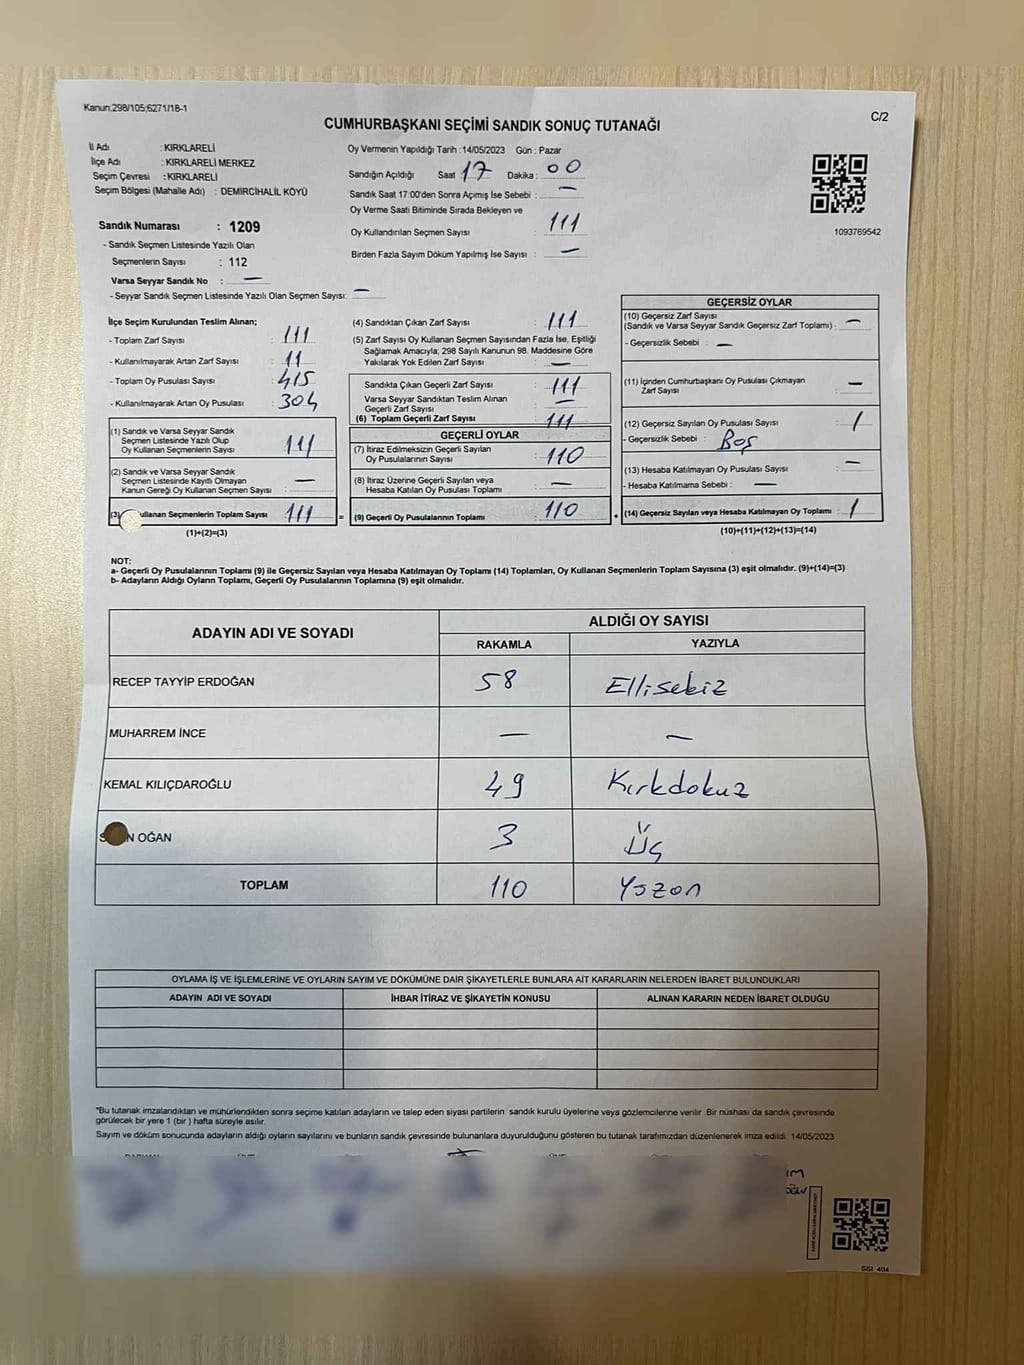 Kanun:298/105;6271/18-1
C/2
CUMHURBAŞKANI SEÇİMİ SANDIK SONUÇ TUTANAĞI
İl Adı : KIRKLARELİ
İlçe Adı : KIRKLARELİ MERKEZ
Seçim Çevresi : KIRKLARELİ
Seçim Bölgesi (Mahalle Adı) : DEMİRCİHALİL KÖYÜ
Sandık Numarası : 1209
- Sandık Seçmen Listesinde Yazılı Olan
Seçmenlerin Sayısı : 112
Varsa Seyyar Sandık No : —
- Seyyar Sandık Seçmen Listesinde Yazılı Olan Seçmen Sayısı: —
Oy Vermenin Yapıldığı Tarih : 14/05/2023 Gün : Pazar
Sandığın Açıldığı Saat 17 Dakika : 00
Sandık Saat 17:00'den Sonra Açımış İse Sebebi : —
Oy Verme Saati Bitiminde Sırada Bekleyen ve
Oy Kullandırılan Seçmen Sayısı : 111
Birden Fazla Sayım Döküm Yapılmış İse Sayısı : —
1093769542
İlçe Seçim Kurulundan Teslim Alınan;
- Toplam Zarf Sayısı : 111
- Kullanılmayarak Artan Zarf Sayısı : 11
- Toplam Oy Pusulası Sayısı : 415
- Kullanılmayarak Artan Oy Pusulası : 304
(1) Sandık ve Varsa Seyyar Sandık
Seçmen Listesinde Yazılı Olup
Oy Kullanan Seçmenlerin Sayısı : 111
(2) Sandık ve Varsa Seyyar Sandık
Seçmen Listesinde Kayıtlı Olmayan
Kanun Gereği Oy Kullanan Seçmen Sayısı : —
(3) ullanan Seçmenlerin Toplam Sayısı : 111 =
(1)+(2)=(3)
(4) Sandıktan Çıkan Zarf Sayısı : 111
(5) Zarf Sayısı Oy Kullanan Seçmen Sayısından Fazla İse, Eşitliği
Sağlamak Amacıyla; 298 Sayılı Kanunun 98. Maddesine Göre
Yakılarak Yok Edilen Zarf Sayısı : —
Sandıkta Çıkan Geçerli Zarf Sayısı : 111
Varsa Seyyar Sandıktan Teslim Alınan
Geçerli Zarf Sayısı : —
(6) Toplam Geçerli Zarf Sayısı : 111
GEÇERLİ OYLAR
(7) İtiraz Edilmeksizin Geçerli Sayılan
Oy Pusulalarının Sayısı : 110
(8) İtiraz Üzerine Geçerli Sayılan veya
Hesaba Katılan Oy Pusulası Toplamı : —
(9) Geçerli Oy Pusulalarının Toplamı : 110 +
GEÇERSİZ OYLAR
(10) Geçersiz Zarf Sayısı
(Sandık ve Varsa Seyyar Sandık Geçersiz Zarf Toplamı) : —
- Geçersizlik Sebebi : —
(11) İçinden Cumhurbaşkanı Oy Pusulası Çıkmayan
Zarf Sayısı : —
(12) Geçersiz Sayılan Oy Pusulası Sayısı : 1
- Geçersizlik Sebebi : Boş
(13) Hesaba Katılmayan Oy Pusulası Sayısı : —
- Hesaba Katılmama Sebebi : —
(14) Geçersiz Sayılan veya Hesaba Katılmayan Oy Toplamı : 1
(10)+(11)+(12)+(13)=(14)
NOT:
a- Geçerli Oy Pusulalarının Toplamı (9) ile Geçersiz Sayılan veya Hesaba Katılmayan Oy Toplamı (14) Toplamları, Oy Kullanan Seçmenlerin Toplam Sayısına (3) eşit olmalıdır. (9)+(14)=(3)
b- Adayların Aldığı Oyların Toplamı, Geçerli Oy Pusulalarının Toplamına (9) eşit olmalıdır.
ADAYIN ADI VE SOYADI ALDIĞI OY SAYISI
RAKAMLA YAZIYLA
RECEP TAYYİP ERDOĞAN 58 Ellisekiz
MUHARREM İNCE — —
KEMAL KILIÇDAROĞLU 49 Kırkdokuz
S N OĞAN 3 Üç
TOPLAM 110 Yszon
OYLAMA İŞ VE İŞLEMLERİNE VE OYLARIN SAYIM VE DÖKÜMÜNE DAİR ŞİKAYETLERLE BUNLARA AİT KARARLARIN NELERDEN İBARET BULUNDUKLARI
ADAYIN ADI VE SOYADI İHBAR İTİRAZ VE ŞİKAYETİN KONUSU ALINAN KARARIN NEDEN İBARET OLDUĞU
*Bu tutanak imzalandıktan ve mühürlendikten sonra seçime katılan adayların ve talep eden siyasi partilerin sandık kurulu üyelerine veya gözlemcilerine verilir. Bir nüshası da sandık çevresinde
görülecek bir yere 1 (bir ) hafta süreyle asılır.
Sayım ve döküm sonucunda adayların aldığı oyların sayılarını ve bunların sandık çevresinde bulunanlara duyurulduğunu gösteren bu tutanak tarafımızdan düzenlenerek imza edildi. 14/05/2023
SSI 404